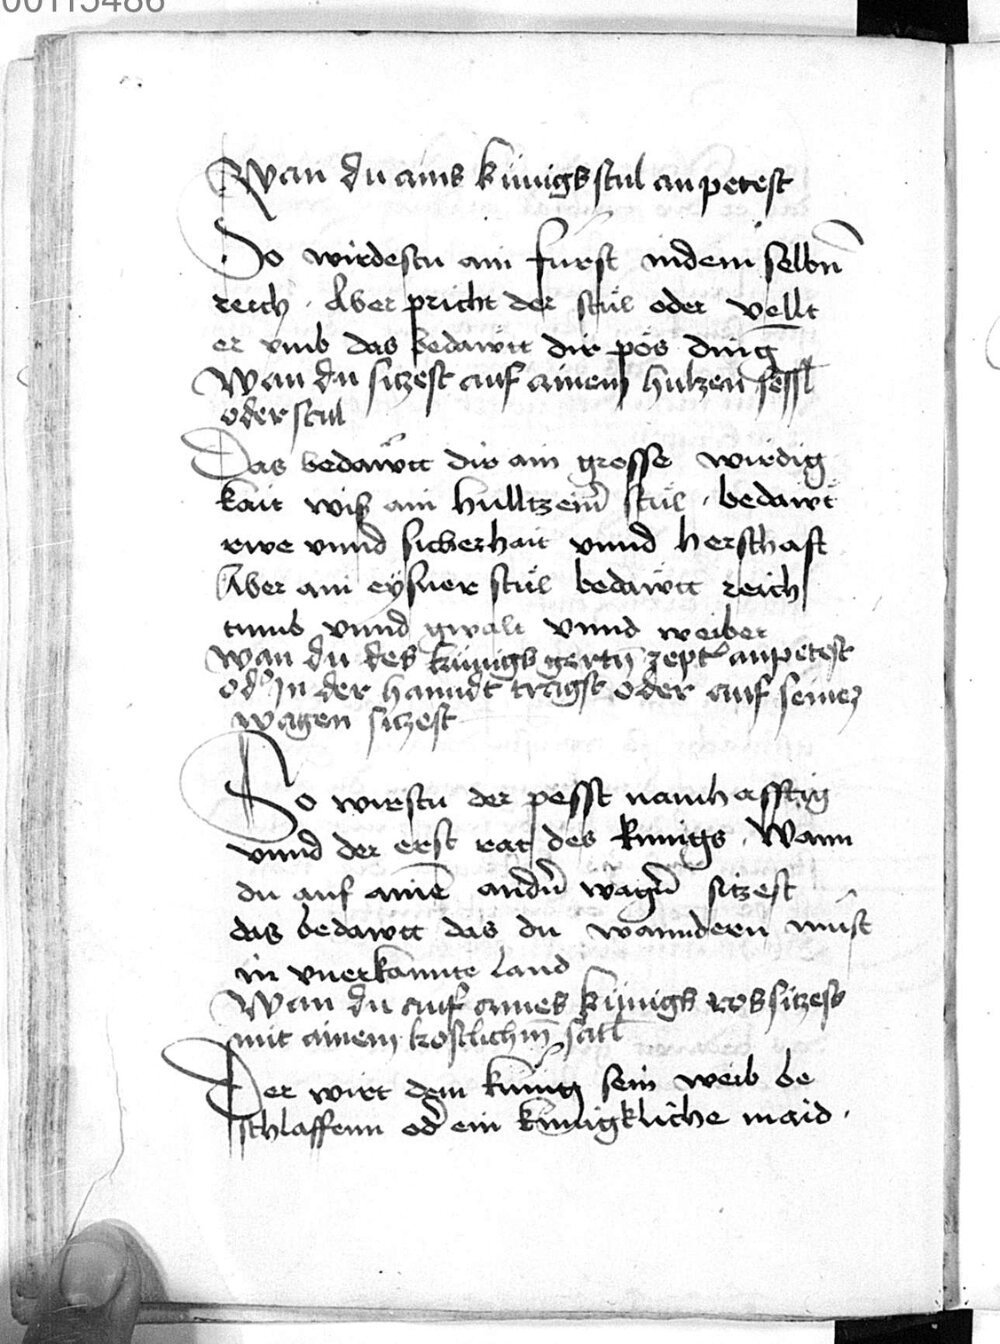 00115486
Wan du ains künigs stul anpetest
So wirdestu ain fürst indem selbn̄
reich . Aber pricht der stůl oder vellt
er vmb das bedawtt dir pös ding
Wan du sitzest auf ainem hulzen sessl
oder stul
Das bedawtt dir ain grosse wirdig
kait wiß ain hulltzein̄ stůl . bedawt
rwe vnnd sicherhait vnnd herschaft
Aber ain eyßner stůl bedawtt reich
tumb vnnd gwalt vnnd weiber
wan du des künigs gertn̄ zeptr anpetest
odr In der hanndt tragst oder auf seinez
wagen sitzest
So wirstu der pesst namhafftig
vnnd der erst rat des kunigs . Wann
du auf ainē andn̄ wagn̄ sitzest
das bedawtt das du wanndern must
in vnerkannte land
Wan du auf aines künigs ros sitzest
mit ainem kostlichn̄ satl
Der wirt dem kunig sein weib be
schlaffenn od ein kunigkliche maid .